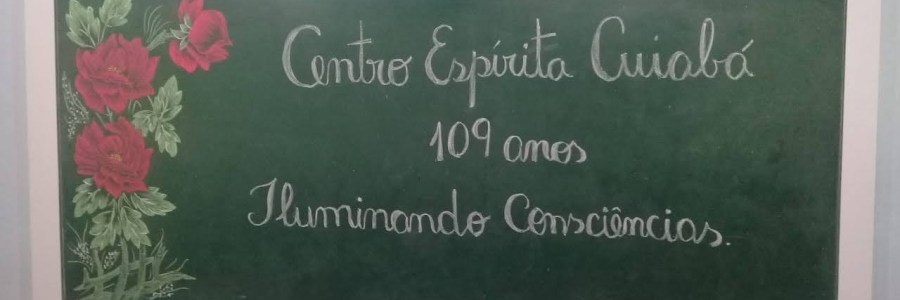 Centro Espírita Cuiabá
109 anos
Iluminando Consciências.